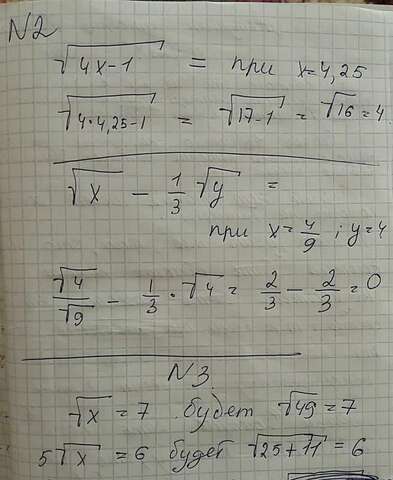 N2
√4x-1 = при x=4,25
√4*4,25-1 = √17-1 = √16 = 4.
√x - 1/3 √y =
при x=4/9 ; y=4
√4/√9 - 1/3 · √4 = 2/3 - 2/3 = 0
N3.
√x = 7 будет √49 = 7
5√x = 6 будет √25+11 = 6